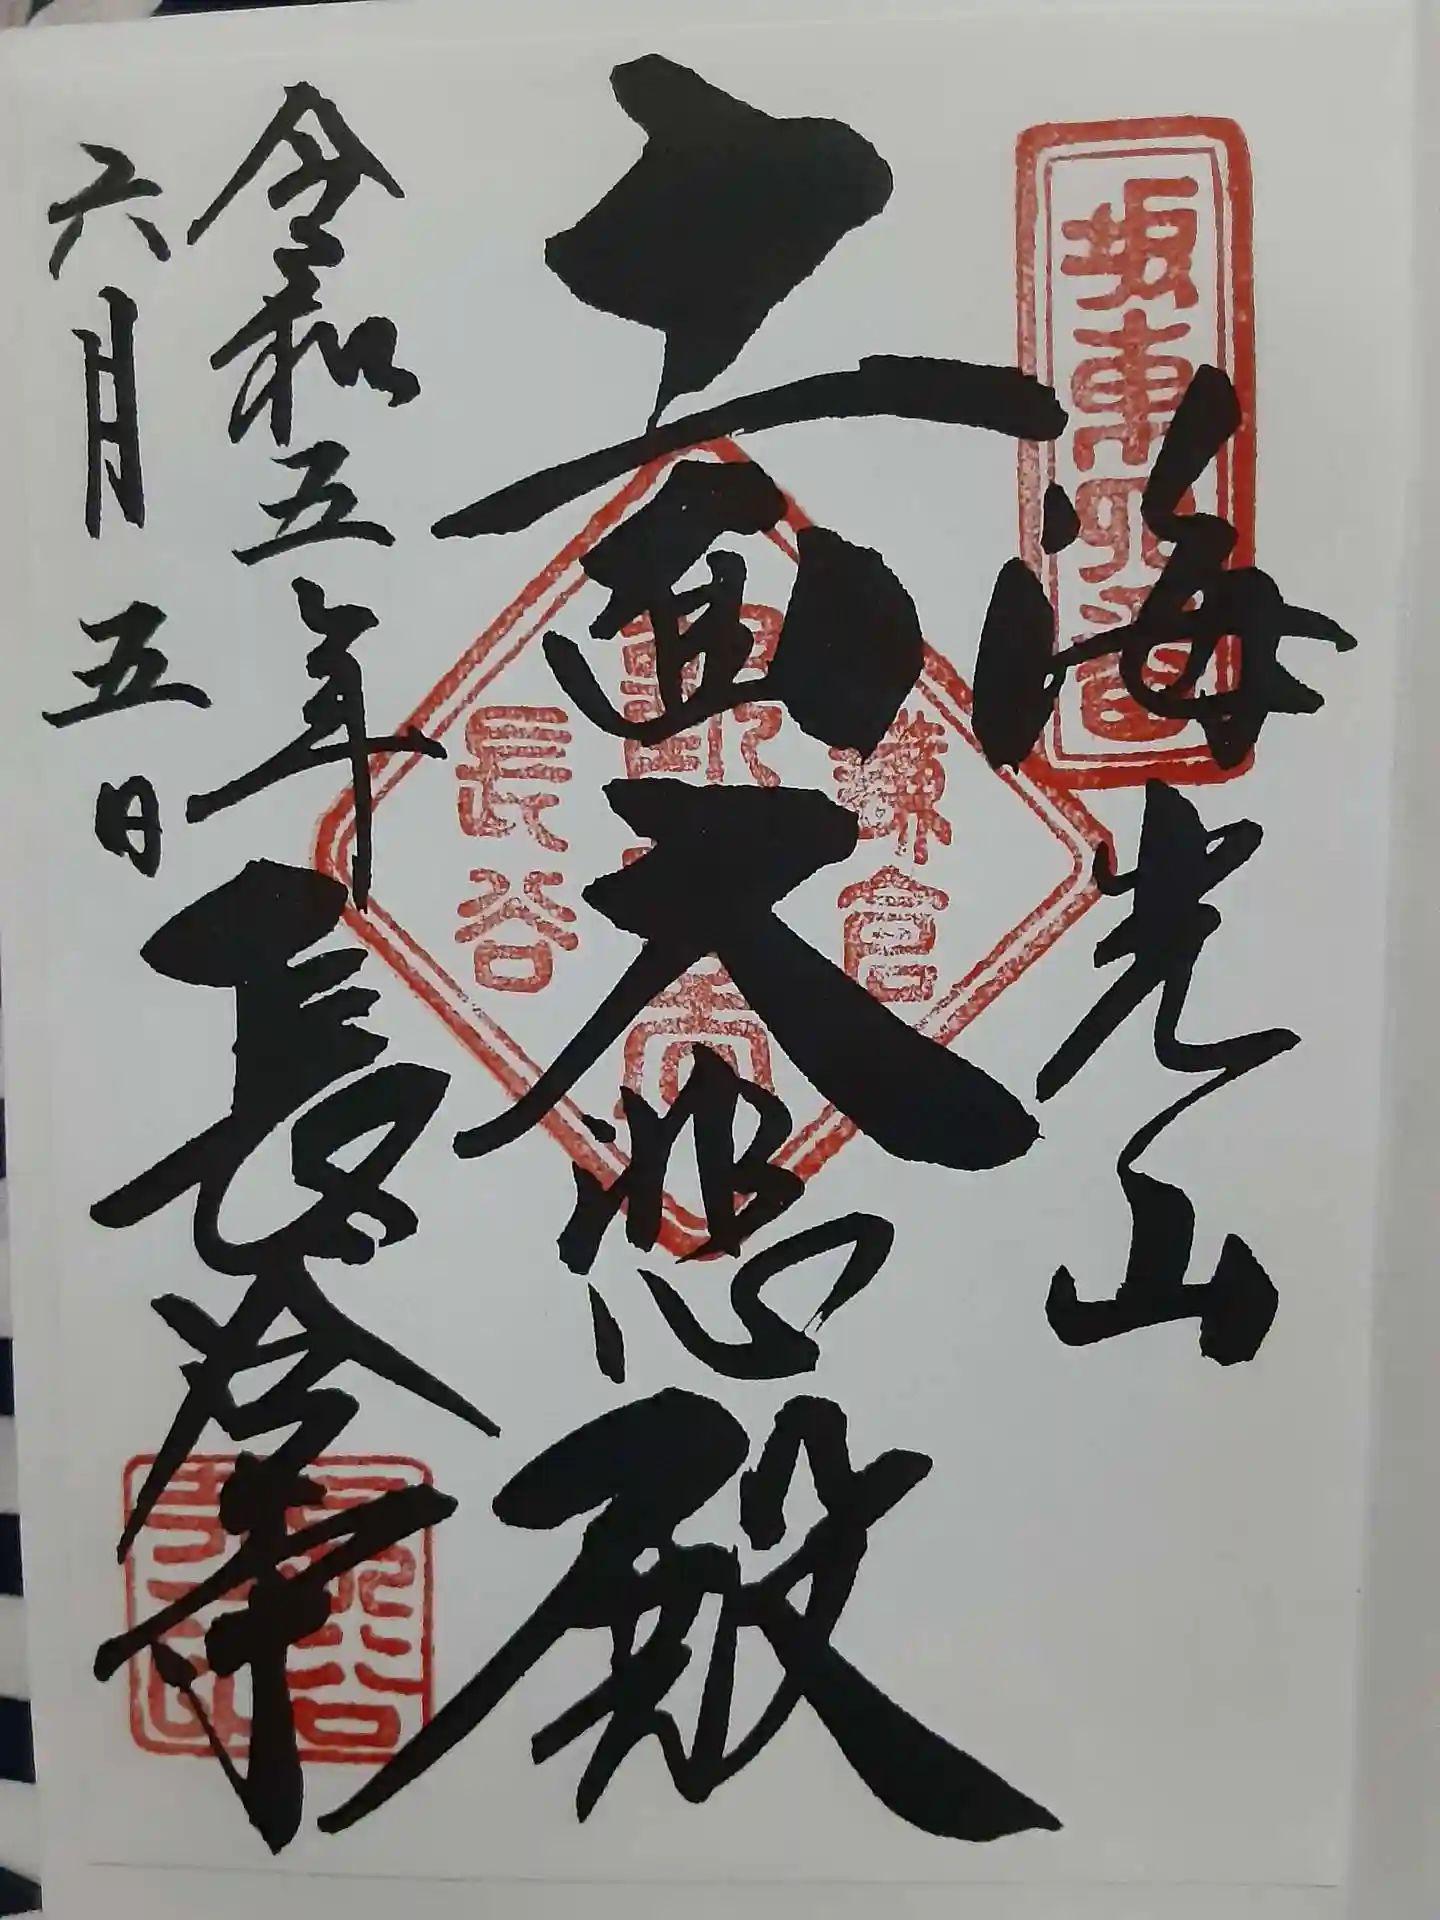 坂東四番
海光山
十一面大悲殿
鎌倉
長谷
令和五年
六月五日
長谷寺